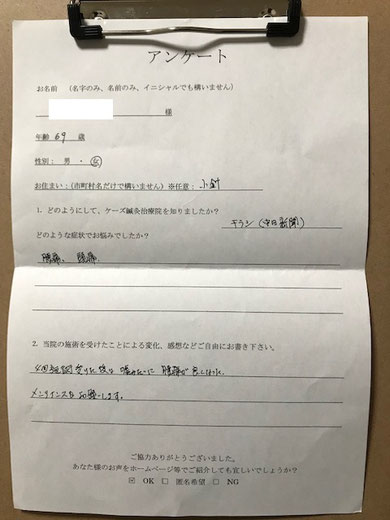 アンケート
お名前 (名字のみ、名前のみ、イニシャルでも構いません)
様
年齢 69 歳
性別: 男 ・ 女
お住まい:(市町村名だけで構いません)※任意: 小針
1. どのようにして、ケーズ鍼灸治療院を知りましたか?
チラシ (中日新聞)
どのような症状でお悩みでしたか?
腰痛、
2. 当院の施術を受けたことによる変化、感想などご自由にお書き下さい。
4回
メンテナンスもお願いします。
ご協力ありがとうございました。
あなた様のお声をホームページ等でご紹介しても宜しいでしょうか?
☑ OK □ 匿名希望 □ NG